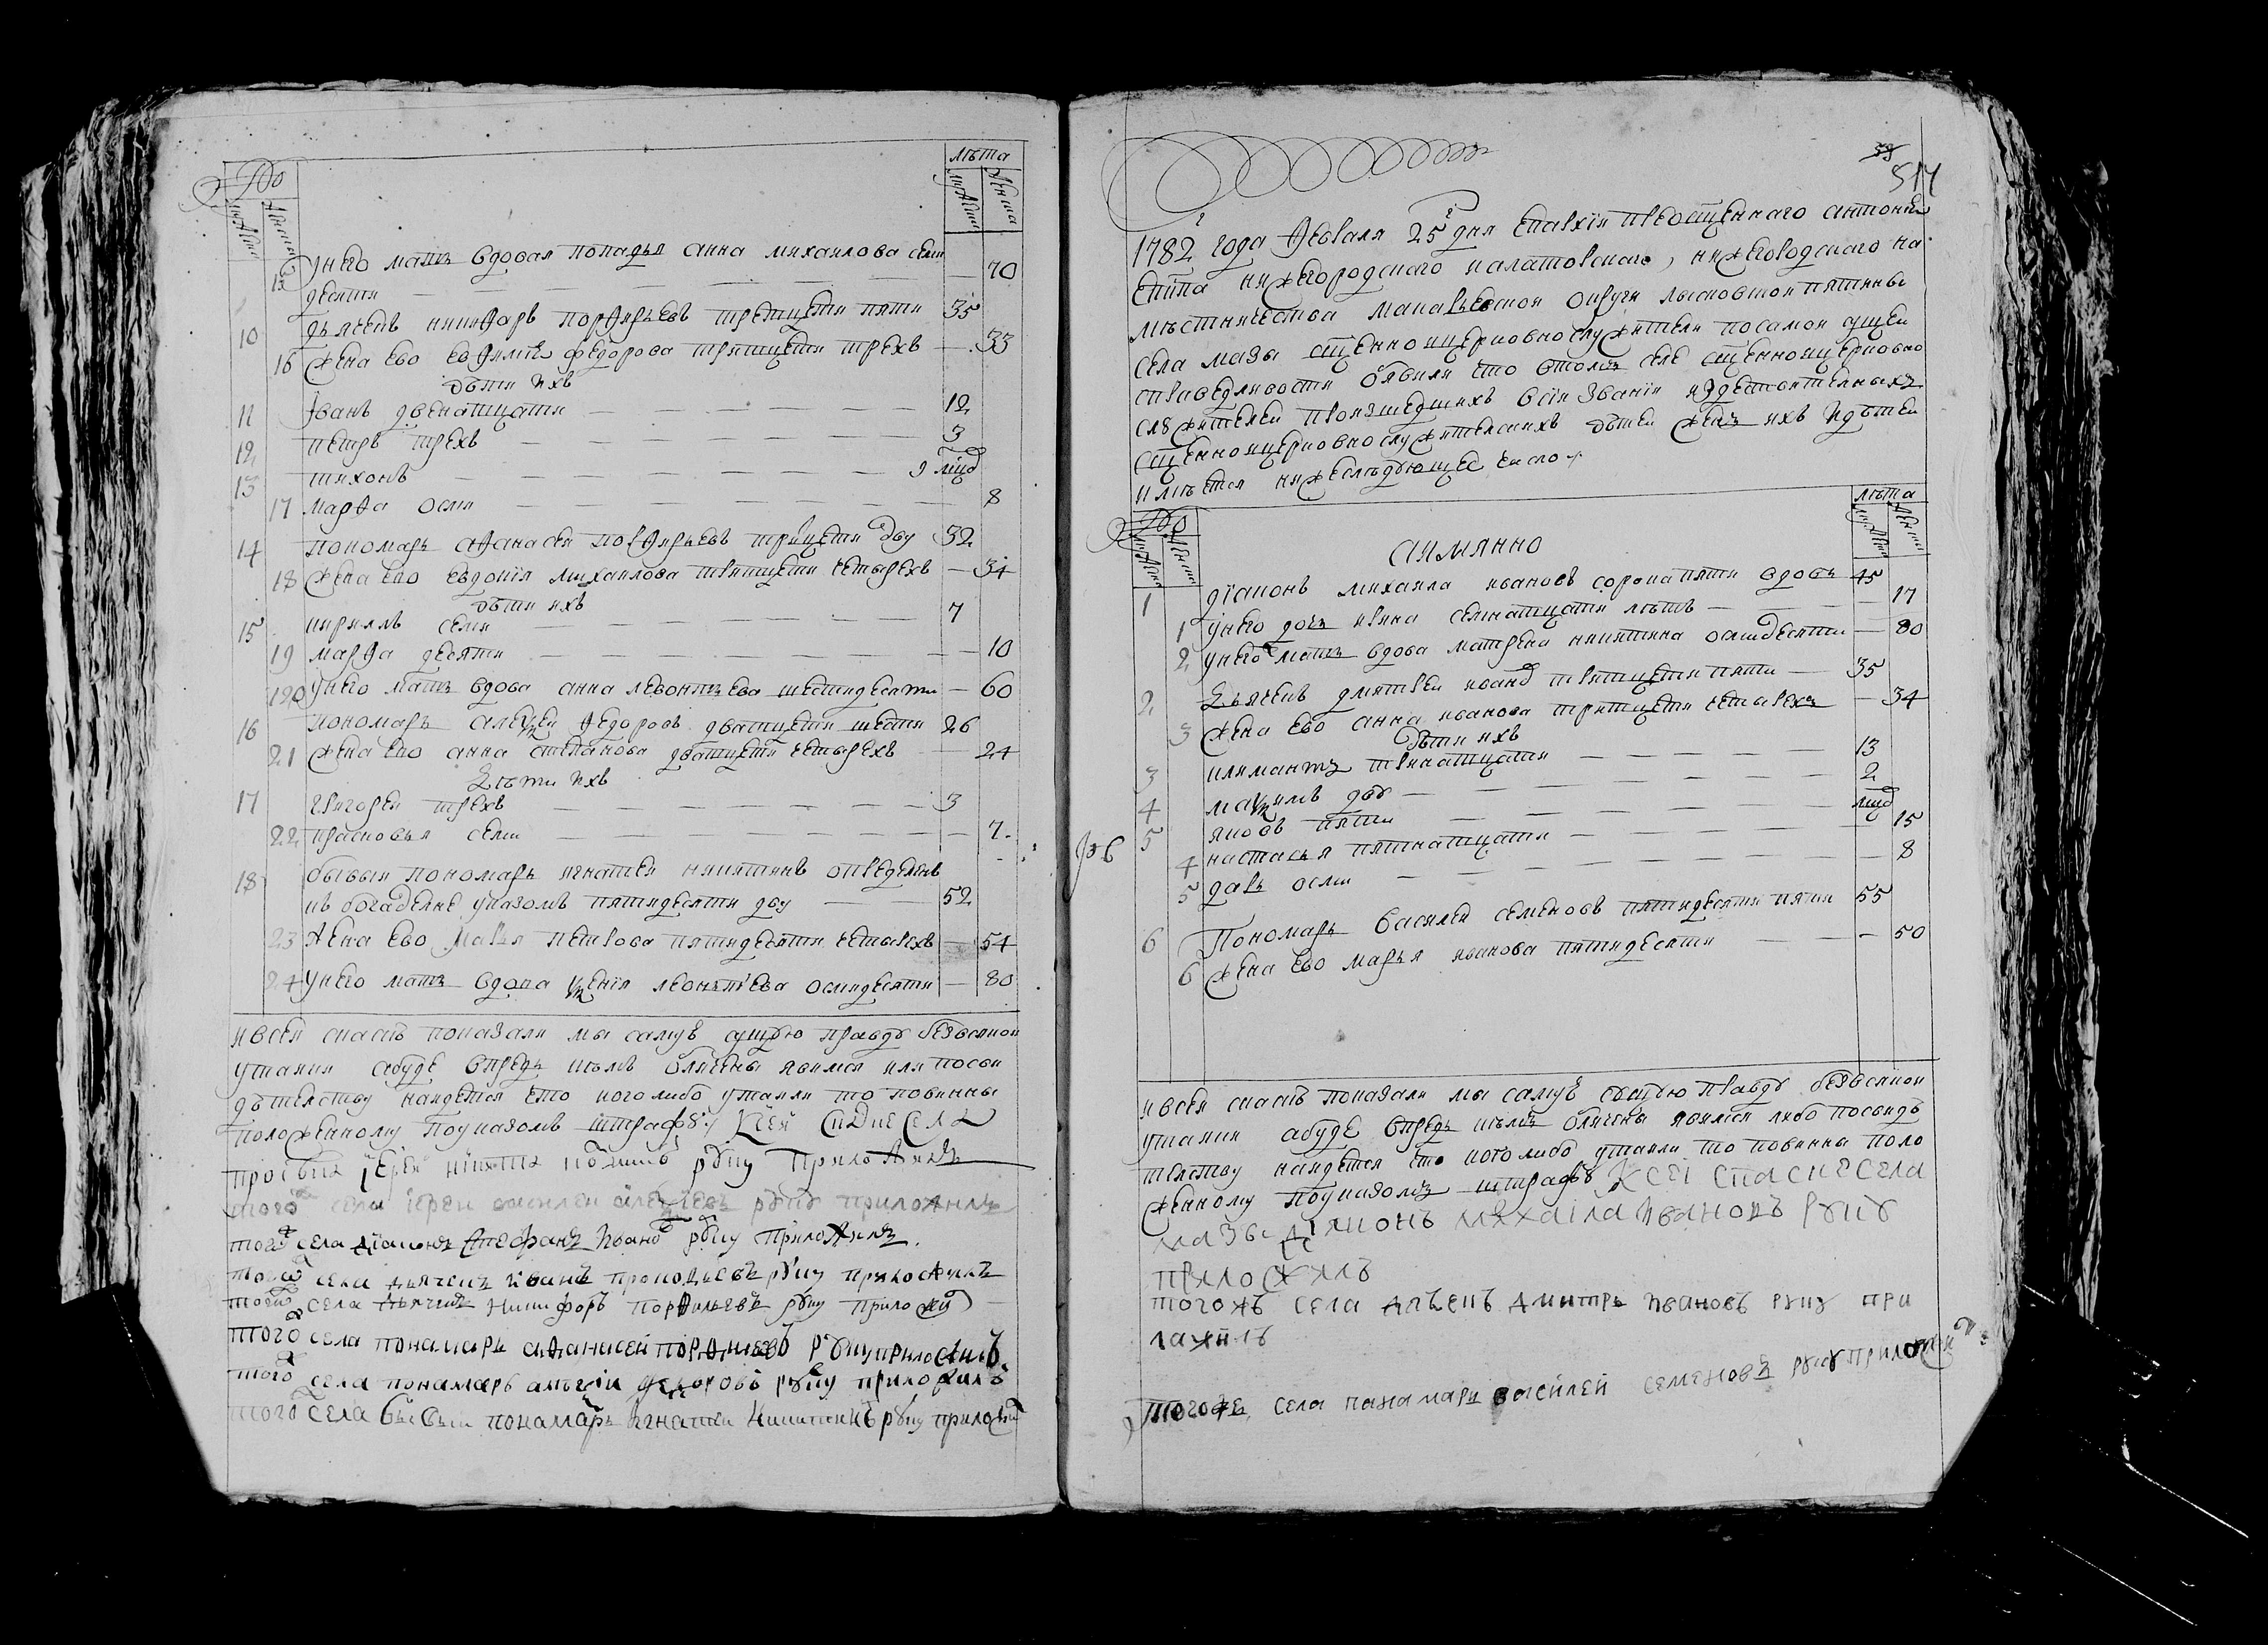 лѣта
мужеска
женска
15 унего мать вдовая попадья анна михаилова семи 70
десяти
10 дьячекъ никифоръ порфирьевъ тритцети пяти 35
16 жена ево евфимія федорова тритцети трехъ 33
дѣти ихъ
11 Іванъ двенатцати 12
12 петръ трехъ 3
13 тихонъ 9 мцо
17 марфа осми 8
14 пономарь афанасеи порфирьевъ трицети дву 32
18 жена ево евдокія михаилова тритцети четырехъ 34
дѣти ихъ
15 кириллъ семи 7
19 марфа десяти 10
120 унего мать вдова анна левонтьева шестидесяти 60
16 пономарь алеѯеи федоровъ дватцети шести 26
21 жена ево анна степанова дватцети четырехъ 24
Дѣти ихъ
17 григореи трехъ 3
22 прасковья семи 7
18 бывыи пономарь игнатеи никитинъ определенъ
въ богаделне указомъ пятидесяти дву 52
23 жена ево марья петрова пятидесяти четырехъ 54
24 унего мать вдова ѯенія леонтьева осмидесяти 80
и всеи скаскѣ показали мы самую сущую правду безвсякои
утаики абуде впредь чѣмъ обличены явимся или посви
дѣтелству наидется что кого либо утаили то повинны
положенному поуказомъ штрафу К сей
іерей никита руку приложилъ
тогожъ села іереи василеи алеѯеевъ руку приложилъ
тогожъ села діаконъ Стефанъ Ивановъ руку приложилъ
тогожъ села дьячекъ иванъ прокопьевъ руку приложилъ
тогожъ села дьячекъ никифоръ порфирьевъ руку приложи
тогожъ села понамарь афанасей порфирьевъ руку приложилъ
тогожъ села понамарь алеѯѣи федоровъ руку приложилъ
тогожъ села бывыи понамарь игнатеи никитинъ руку приложи
59
514
1782 года февраля 25 дня епархіи преосщеннаго антонія
епкпа нижегородскаго иалатовскаго, нижегородскаго на
мѣстничества макарьевскои округи лысковскои пятины
села мазы сщенноицерковнослужители посамои сущеи
справедливости обявили что втомъ селе сщенноицерковно
служителеи произшедшихъ всіи званіи издеиствителныхъ
сщенноицерковнослужителскихъ дѣтеи женъ ихъ идѣтеи
имѣется нижеслѣдующее число
лѣта
мужеска
женска
АИМЯННО
1 діаконъ михаила ивановъ сорока пяти вдовъ 45
1 унего дочь ирина семнатцати лѣтъ 17
2 унегожъ мать вдова матрена никитина осмидесяти 80
2 Дьячекъ дмитреи иванов тритцети пяти 35
3 жена ево анна иванова тритцети четырехъ 34
дѣти ихъ
3 климантъ тринатцати 13
4 маѯимъ дву 2
5 яковъ пяти мцо
4 настасья пятнатцати 15
5 дарья осми 8
6 Пономарь василеи семеновъ пятидесяти пяти 55
6 жена ево марья иванова пятидесяти 50
и всеи скаскѣ показали мы самую сущую правду безвсякои
утаики абуде впредь чѣмъ обличены явимся либо посвидѣ
телству наидется что кого либо утаили то повинны поло
женному поуказомъ штрафу К сеі спаскѣ села
мазы діяконъ михаіла ивановъ руку
приложилъ
тогожъ села дьяченъ дмитрь ивановъ руку при
лажилъ
тогоже села панамарь василей семеновъ руку приложилъ